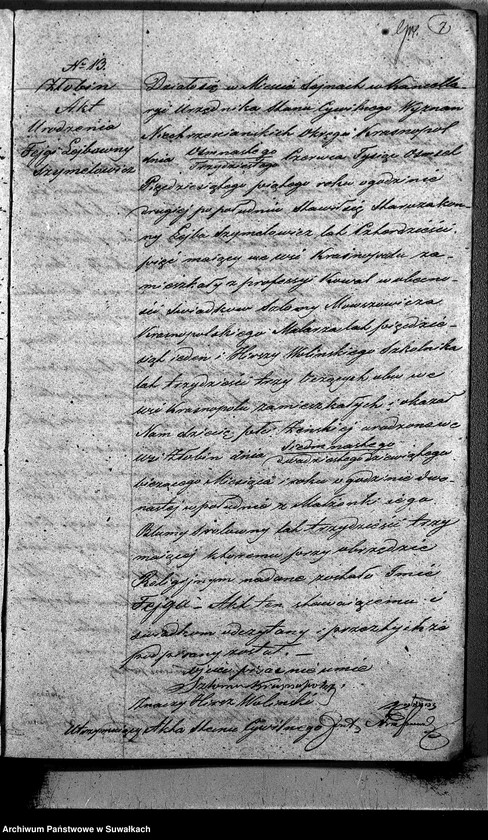 7
№ 13.
Żłobin
Akt
Urodzenia
Fejgi Lejbowny
Szymelowicz
Działo się w Mieście Sejnach w Kancella-
ryi Urzędnika Stanu Cywilnego Wyznań
Niechrześciańskich Okręgu Krasnopol
dnia Osiemnastego / Trzydziestego Czerwca Tysiąc Osmset
Pięćdziesiątego piątego roku o godzinie
drugiej po południu Stawił się Starozakon-
ny Lejba Szymelowicz lat Czterdzieści
pięć mający we wsi Krasnopolu za-
mieszkały z professyi Kowal w obecno-
ści świadków Szlomy Mowszowicza
Krasnopolskiego Malarza lat pięćdzie-
siąt jeden i Herszy Wolińskiego Szkolnika
lat trzydzieści trzy liczących obu we
wsi Krasnopolu zamieszkałych; okazał
Nam dziecię płci żeńskiej urodzone we
wsi Żłobin dnia Siedmnastego / dwudziestego dziewiątego
bieżącego Miesiąca i roku o godzinie dwu-
nastej w południe z Małżonki jego
Blumy Srolowny lat trzydzieści trzy
mającej któremu przy obrzędzie
Religijnym nadane zostało Imie
Fejga – Akt ten stawającemu i
świadkom odczytany i przez tychże
podpisany został –
Ojciec pisać nie umie
Szloma Krasnopolski
Znaczy Hersz Woliński
Utrzymujący Akta Stanu Cywilnego
Archiwum Państwowe w Suwałkach